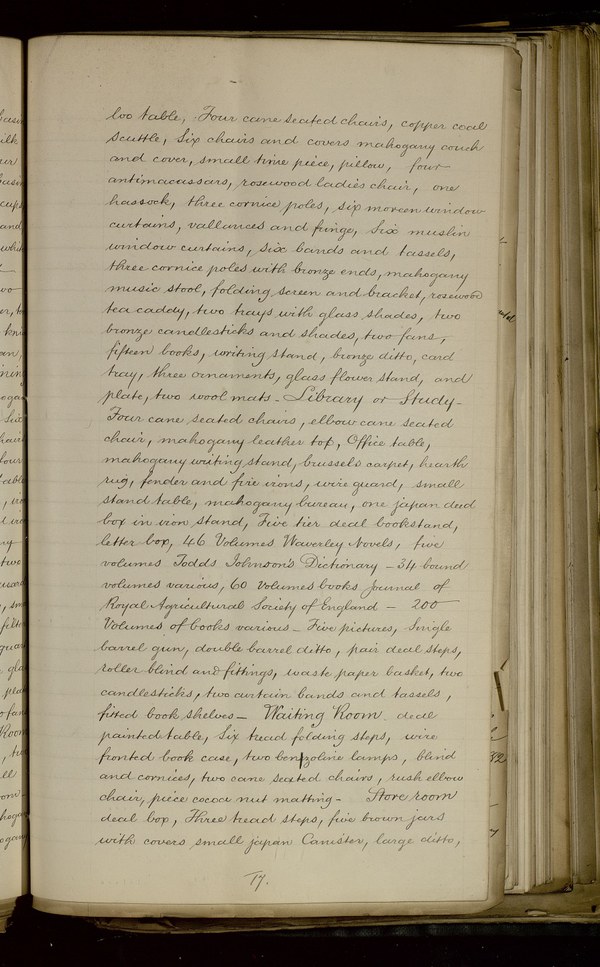 loo table, Four cane seated chairs, copper coal
scuttle, Six chairs and covers mahogany couch
and cover, small time piece, pillow, four
antimacassars, rosewood ladies chair, one
hassock, three cornice poles, six moreen window
curtains, vallances and fringe, Six muslin
window curtains, six bands and tassels,
three cornice poles with bronze ends, mahogany
music stool, folding screen and bracket, rosewood
tea caddy, two trays with glass shades, two
bronze candlesticks and shades, two fans,
fifteen books, writing stand, bronze ditto, card
tray, three ornaments, glass flower stand, and
plate, two wool mats - Library or Study -
Four cane seated chairs, elbow cane seated
chair, mahogany leather top, Office table,
mahogany writing stand, brussels carpet, hearth
rug, fender and fire irons, wire guard, small
stand table, mahogany bureau, one japan deed
box in iron stand, Five tier deal bookstand,
letter box, 46 Volumes Waverley Novels, five
volumes Todds Johnson's Dictionary - 34 bound
volumes various, 60 Volumes books Journal of
Royal Agricultural Society of England - 200
Volumes of books various - Five pictures, Single
barrel gun, double barrel ditto, pair deal steps,
roller blind and fittings, waste paper basket, two
candlesticks, two curtain bands and tassels,
fitted book shelves - Waiting Room deal
painted table, Six tread folding steps, wire
fronted book case, two benzoline lamps, blind
and cornices, two cane seated chairs, rush elbow
chair, piece cocoa nut matting - Store room
deal box, Three tread steps, five brown jars
with covers small japan Canister, large ditto,
17.